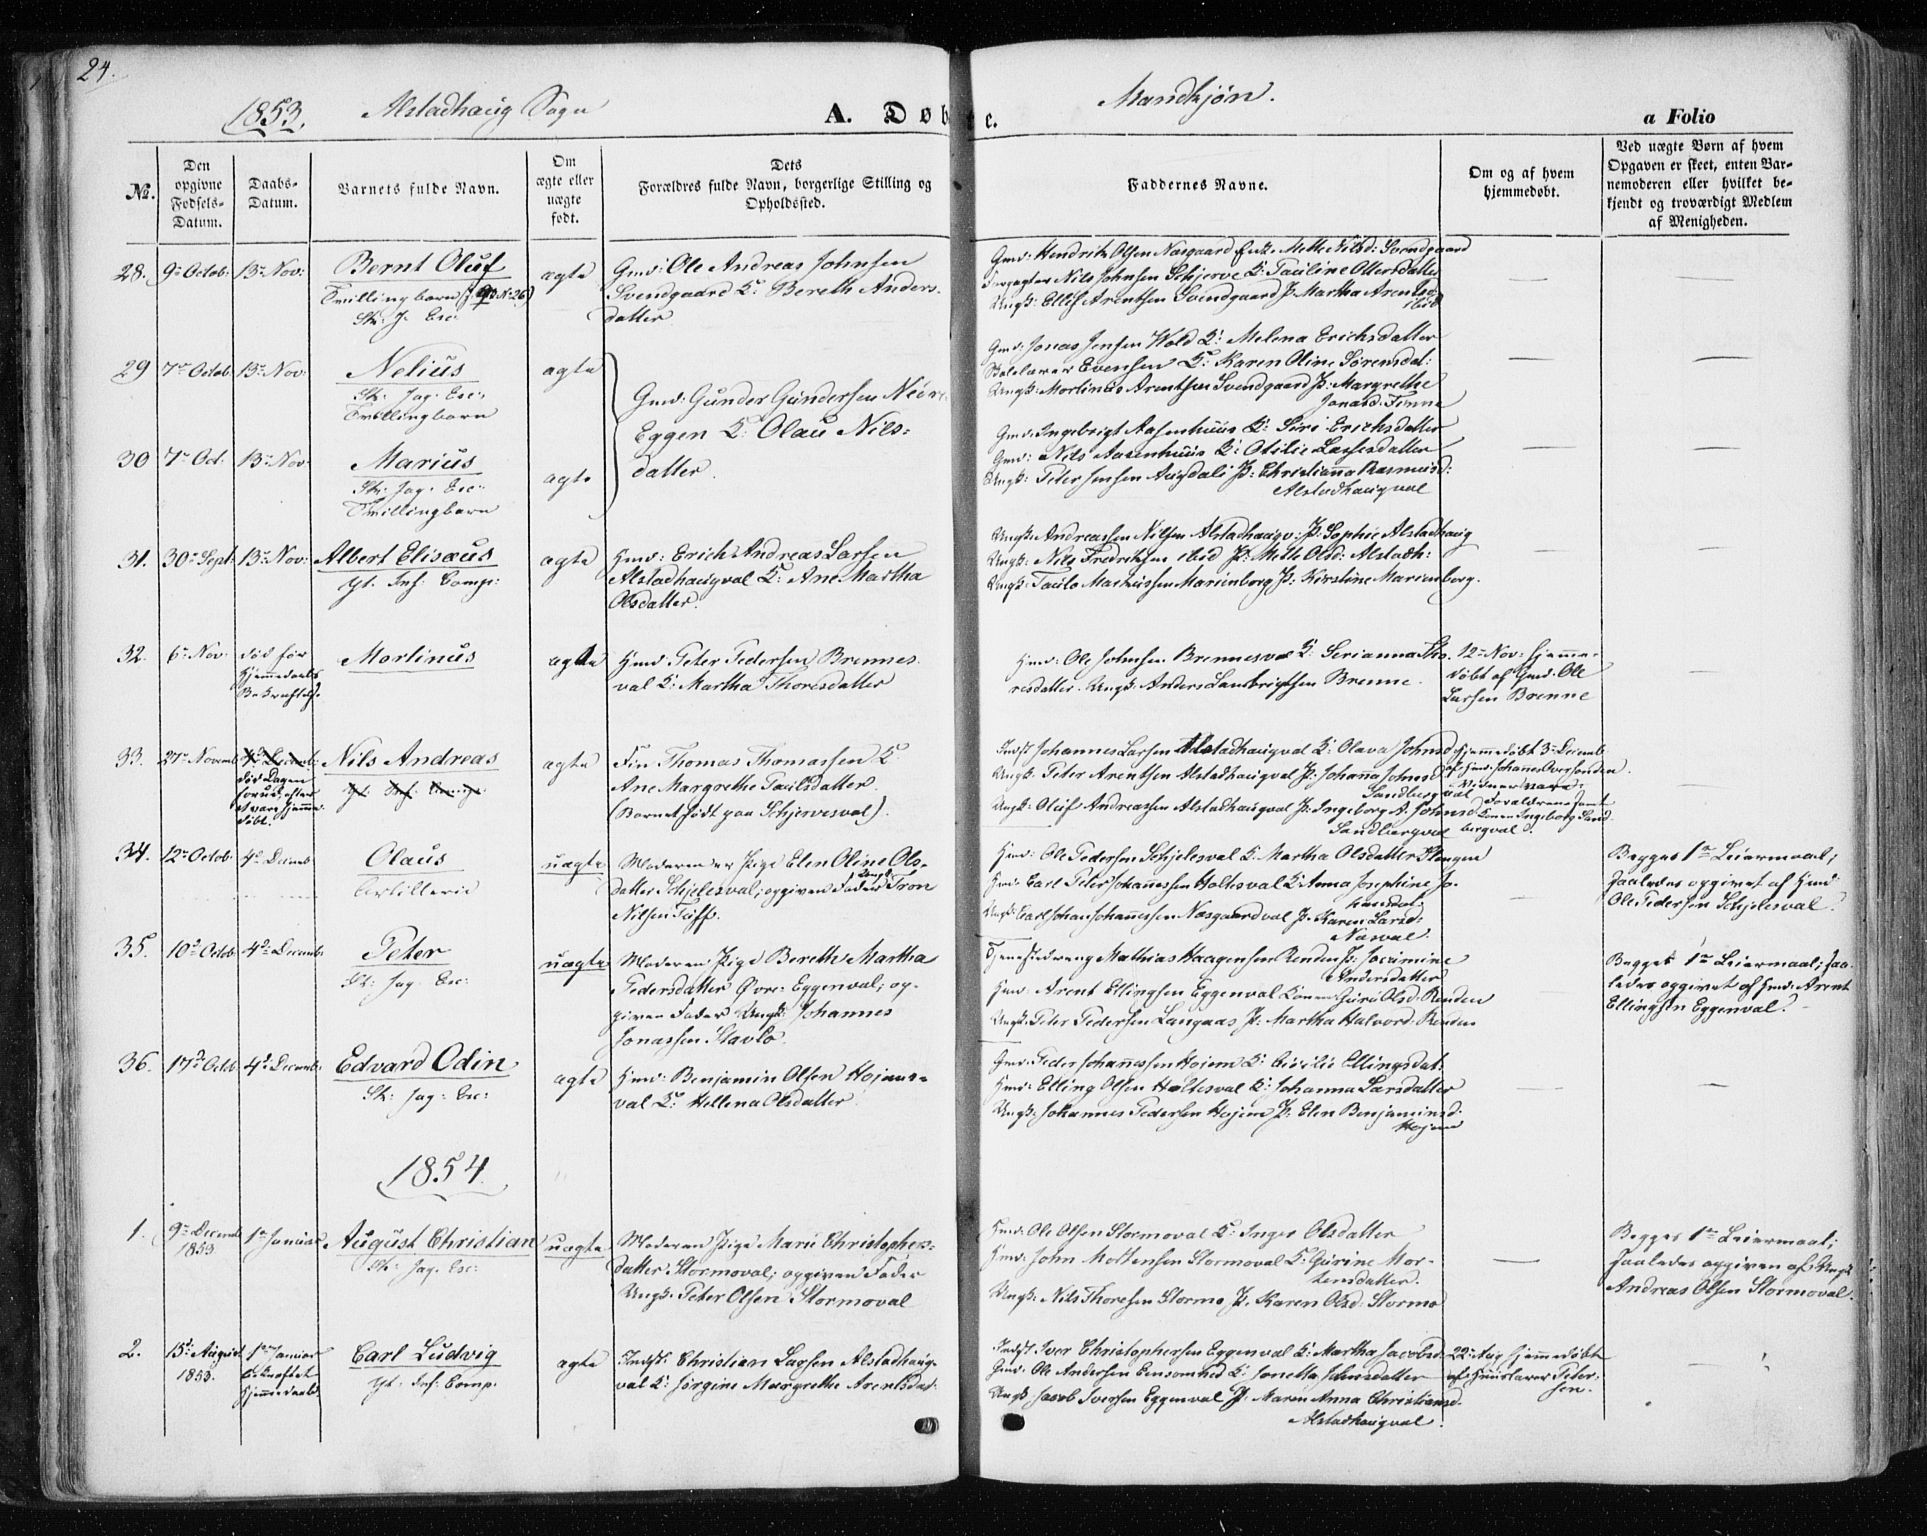 24.
1853. Alstadhaug Sogn
A. Døbte.
Mandkjøn.
a Folio
No.
Den opgivne Fødsels-Datum.
Daabs-Datum.
Barnets fulde Navn.
Om ægte eller uægte født.
Dets Forældres fulde Navn, borgerlige Stilling og Opholdssted.
Faddernes Navne.
Om og af hvem hjemmedøbt.
Ved uægte Børn af hvem
Opgaven er skeet, enten Bar-
nemoderen eller hvilket be-
kjendt og troværdigt Medlem
af Menigheden.
28. 9de Octob: 13de Nov:
Bernt Oluf
Tvillingbarn
ægte
Gmd: Ole Andreas Johnsen
Svendgaard K: Bereth Anders-
datter
Gmd: Hendrik Olsen Næsgaard Enke Mette Nilsd: Svendgaard
Forpagter Nils Johnsen Schjerve K: Pauline Ottersdatter
Ungk: Ellef Arentsen Svendgaard P: Martha Arentsd:
ibid
29 7de Octob 13de Nov:
Nelius
Str: Jag: Esc:
Tvillingbarn
ægte
Gmd: Gunder Gundersen Nedre
Eggen K: Olau Nils-
datter.
Gmd: Jonas Jensen Hold K: Melena Erichsdatter
Skolelærer Evensen K: Karen Oline Sørensdat:
Ungk: Mortinus Arentsen Svendgaard P: Margrethe
Jonasd: Finne
30 7de Oct. 13de Nov:
Marius
Str: Jag: Esc:
Tvillingbarn
ægte
Gmd: Ingebrigt Aasenhuus K: Siri Erichsdatter
Gmd: Nils Aasenhuus K: Otilie Lassesdatter
Ungk: Peter Jensen Augdal P: Christianna Rasmusd:
Alstadhaugval
31. 30te Sept: 13de Nov:
Albert Elisæus
Yt. Inf: Comp:
ægte
Hmd: Erich Andreas Larsen
Alstadhaugval K: Ane Martha
Olsdatter.
Ungk: Andreassen Nilsen Alstadhaugv: P: Sophie Alstadhaug
Ungk: Nils Fredriksen ibid P: Mette Olsd: Alstadh:
Ungk: Paulo Mathiassen Marienborg P: Kirstine Marienborg.
32. 6te Nov:
død før
Hjemmedaabs
Bekræftelse.
Mortinus
ægte
Hmd: Peter Pedersen Brennes-
val K: Martha Thoresdatter
Hmd: Ole Johnsen Brennesval K: Serianna Tho-
resdatter. Ungk: Anders Lambrigtsen Brenne.
12te Nov: hjemme-
døbt af Gmd: Ole
Larsen Brenne
33. 27de Novemb:
4de Decemb:
død Dagen
forud, efter
at være hjemme-
døbt.
Nils Andreas
Yt. Inf: Comp:
ægte
Fin Thomas Thomassen K:
Ane Margrethe Paulsdatter.
(Barnet født paa Schjervesval).
Indst: Johannes Larsen Alstadhaugval K: Olava Johnsd
Ungk: Peter Arentsen Alstadhaugval P: Johanna Johnsd
Sandbergval
Ungk: Oluf Andreassen Alstadhaugval P: Ingeborg A. Johnsd
Sandbergval
hjemmedøbt 3de Decemb:
af Hmd: Johannes
Vidner vare:
Forældrene samt
Konen Ingeborg Sand-
bergval.
34. 12te Octob 4de Decemb:
Olaus
Artillerie
uægte
Moderen er Pige Elen Oline Ols-
datter Schjelesval; opgiven Fader Ungk: Tron
Nilsen
Hmd: Ole Pedersen Schjelesval K: Martha Olsdatter
Hmd: Carl Peter Johannessen Holtesval K: Anna Josephine Jo-
hansdat:
Ungk: Carl Johan Johannessen Næsgaardval P: Karen Larsd:
Næsval.
Begges 1te Leiermaal;
saaledes opgivet af Hmd
Ole Pedersen Schjelesval.
35. 10de Octob 4de Decemb:
Peter
Str: Jag: Esc:
uægte
Moderen: Pige Bereth Martha
Pedersdatter Øvre: Eggenval; op-
given Fader Ungk: Johannes
Jonassen Stavlo.
Tjenestedreng Mathias Haagensen Renden P: Jocumine
Andersdatter
Hmd: Arent Ellingsen Eggenval Konen Guri Olsd: Renden
Ungk: Peter Pedersen Langaas P: Martha Halvord: Renden
Begges 1te Leiermaal; saa-
ledes opgivet af Hmd: Arent
Ellingsen Eggenval.
36. 17de Octob 4de Decemb:
Edvard Odin
Str: Jag: Esc:
ægte
Hmd: Benjamin Olsen Hojems-
val K: Hellena Olsdatter
Gmd: Peder Johannessen Hojem K: Cicilie Ellingsdat:
Hmd: Elling Olsen Holtesval K: Johanna Larsdatter
Ungk: Johannes Pedersen Hojem P: Elen Benjaminsd:
Hojem
1854.
1. 9de Decemb: 1853
1te Januar
August Christian
Str: Jag: Esc:
uægte
Moderen Pige Marie Christophers-
datter Stormoval; opgiven Fader
Ungk: Peter Olsen Stormoval
Hmd: Ole Olsen Stormoval K: Inger Olsdatter
Hmd: John Mortensen Stormoval K: Gurine Mor-
tensdatter.
Ungk: Nils Thoresen Stormo P: Karen Olsd: Stormo
Begges 1te Leiermaal;
saaledes opgiven af Ungk
Andreas Olsen Stormoval.
2. 15de August 1853.
1te Januar
bekræftet
Hjemmedaab
Carl Ludvig
Yt: Inf: Comp.
ægte
Indst: Christian Larsen Alstadhaug-
val K: Jørgine Margrethe Arentsdat:
Indst: Iver Christophersen Eggenval K: Martha Jacobsd:
Gmd: Ole Andersen Eensomhed K: Jonetta Johnsdatter
Ungk: Jacob Iversen Eggenval P: Maren Anna Christiansd:
Alstadhaugval.
22de Aug: hjemmedøbt
af Huuslærer Peter-
sen.